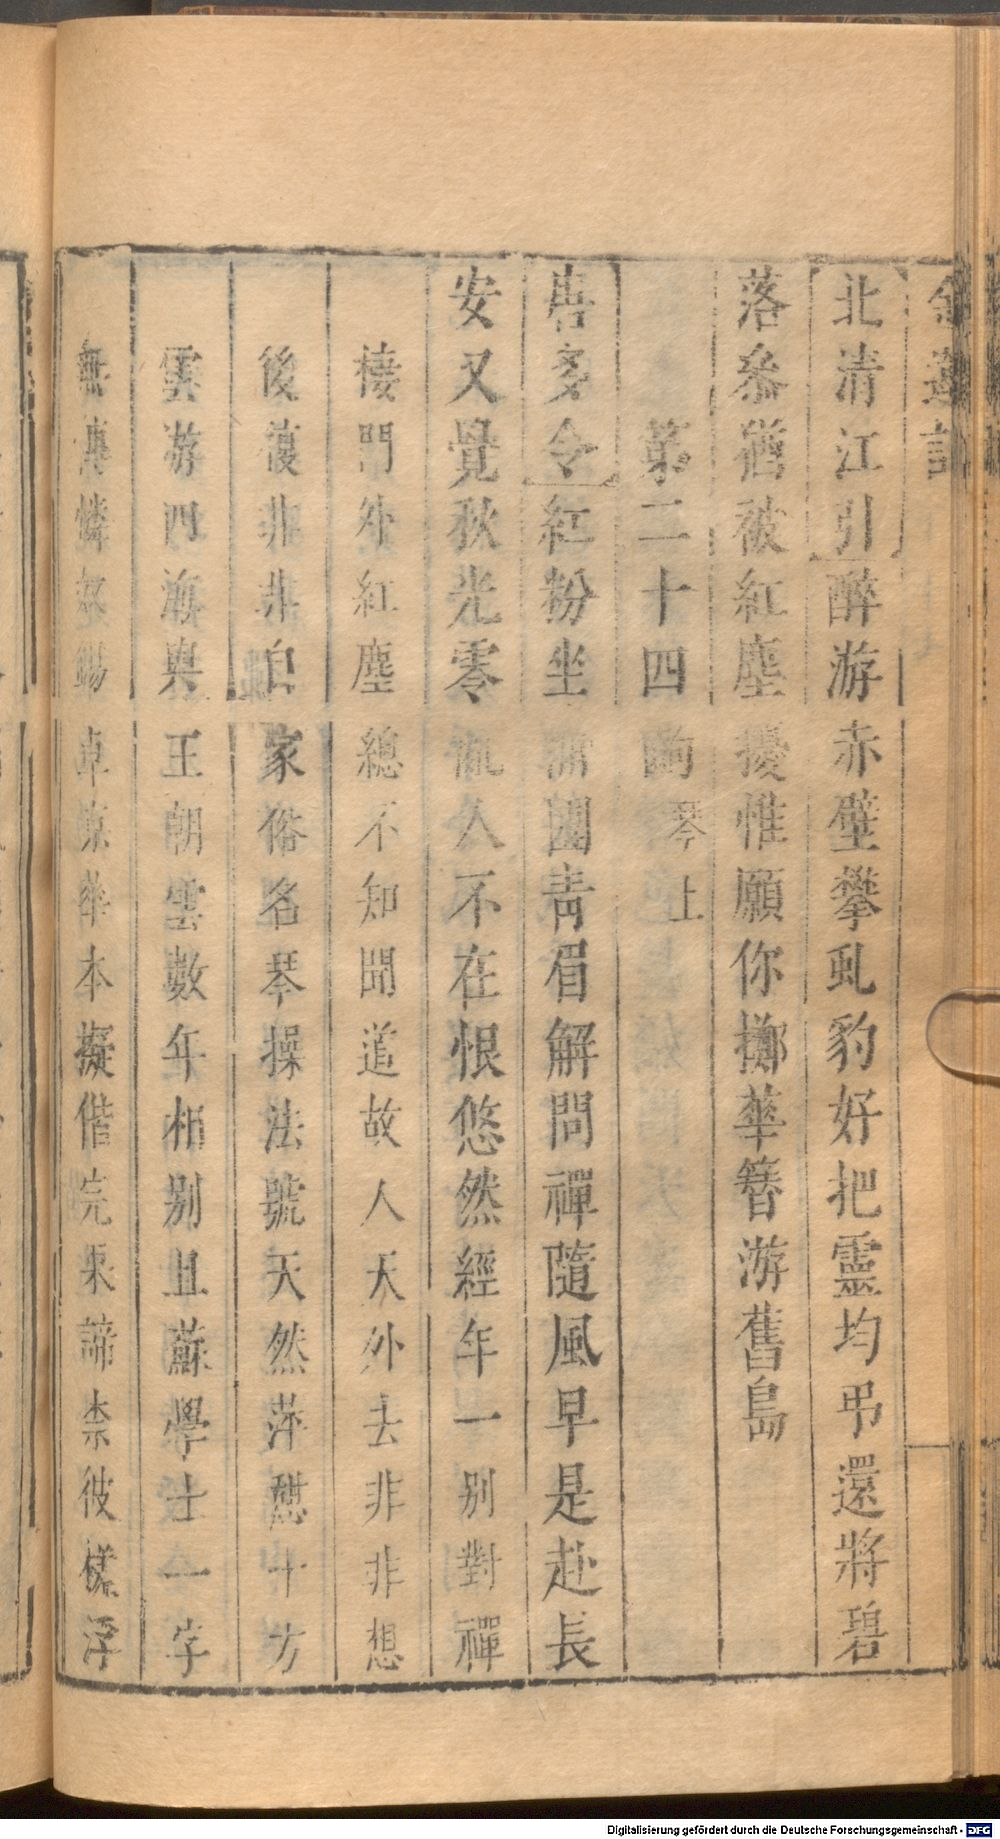 金蓮記
北清江引醉游赤壁攀虬豹好把靈均弔還將碧
落參猶被紅塵擾惟願你擲華簪游舊島
第二十四齣 琴上
唐多令紅粉坐蒲團青眉解問禪隨風早是赴長
安又覺秋光零亂人不在恨悠然經年一別對禪
棲門外紅塵總不知聞道故人天外去非非想
後復非非自家俗名琴操法號天然萍憩十方
雲游四海與王朝雲數年相別且蘇學士一字
無傳憐奴錫卓京華本擬偕完果諦柰彼樣浮
Digitalisierung gefördert durch die Deutsche Forschungsgemeinschaft - DFG